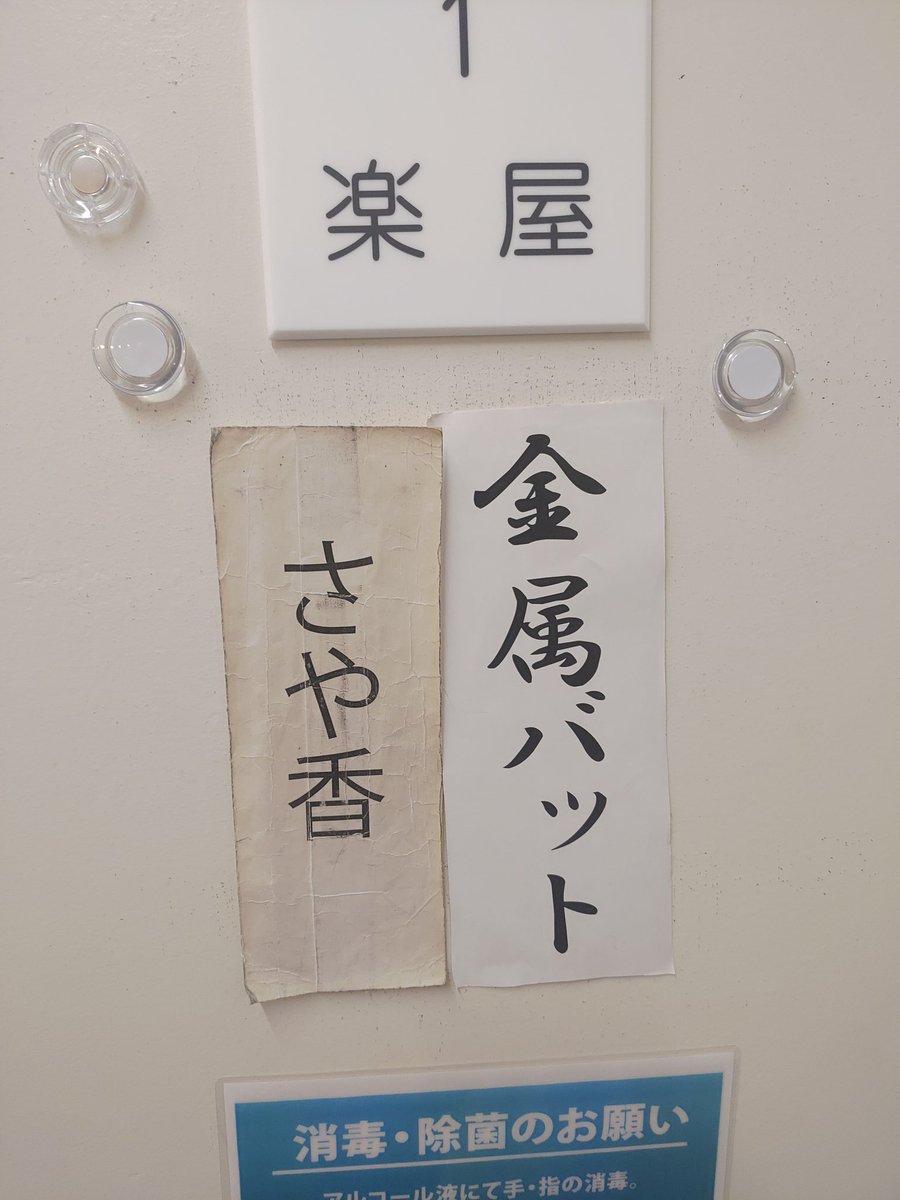 1
楽屋
金属バット
さや香
消毒・除菌のお願い
アルコール液にて手・指の消毒。